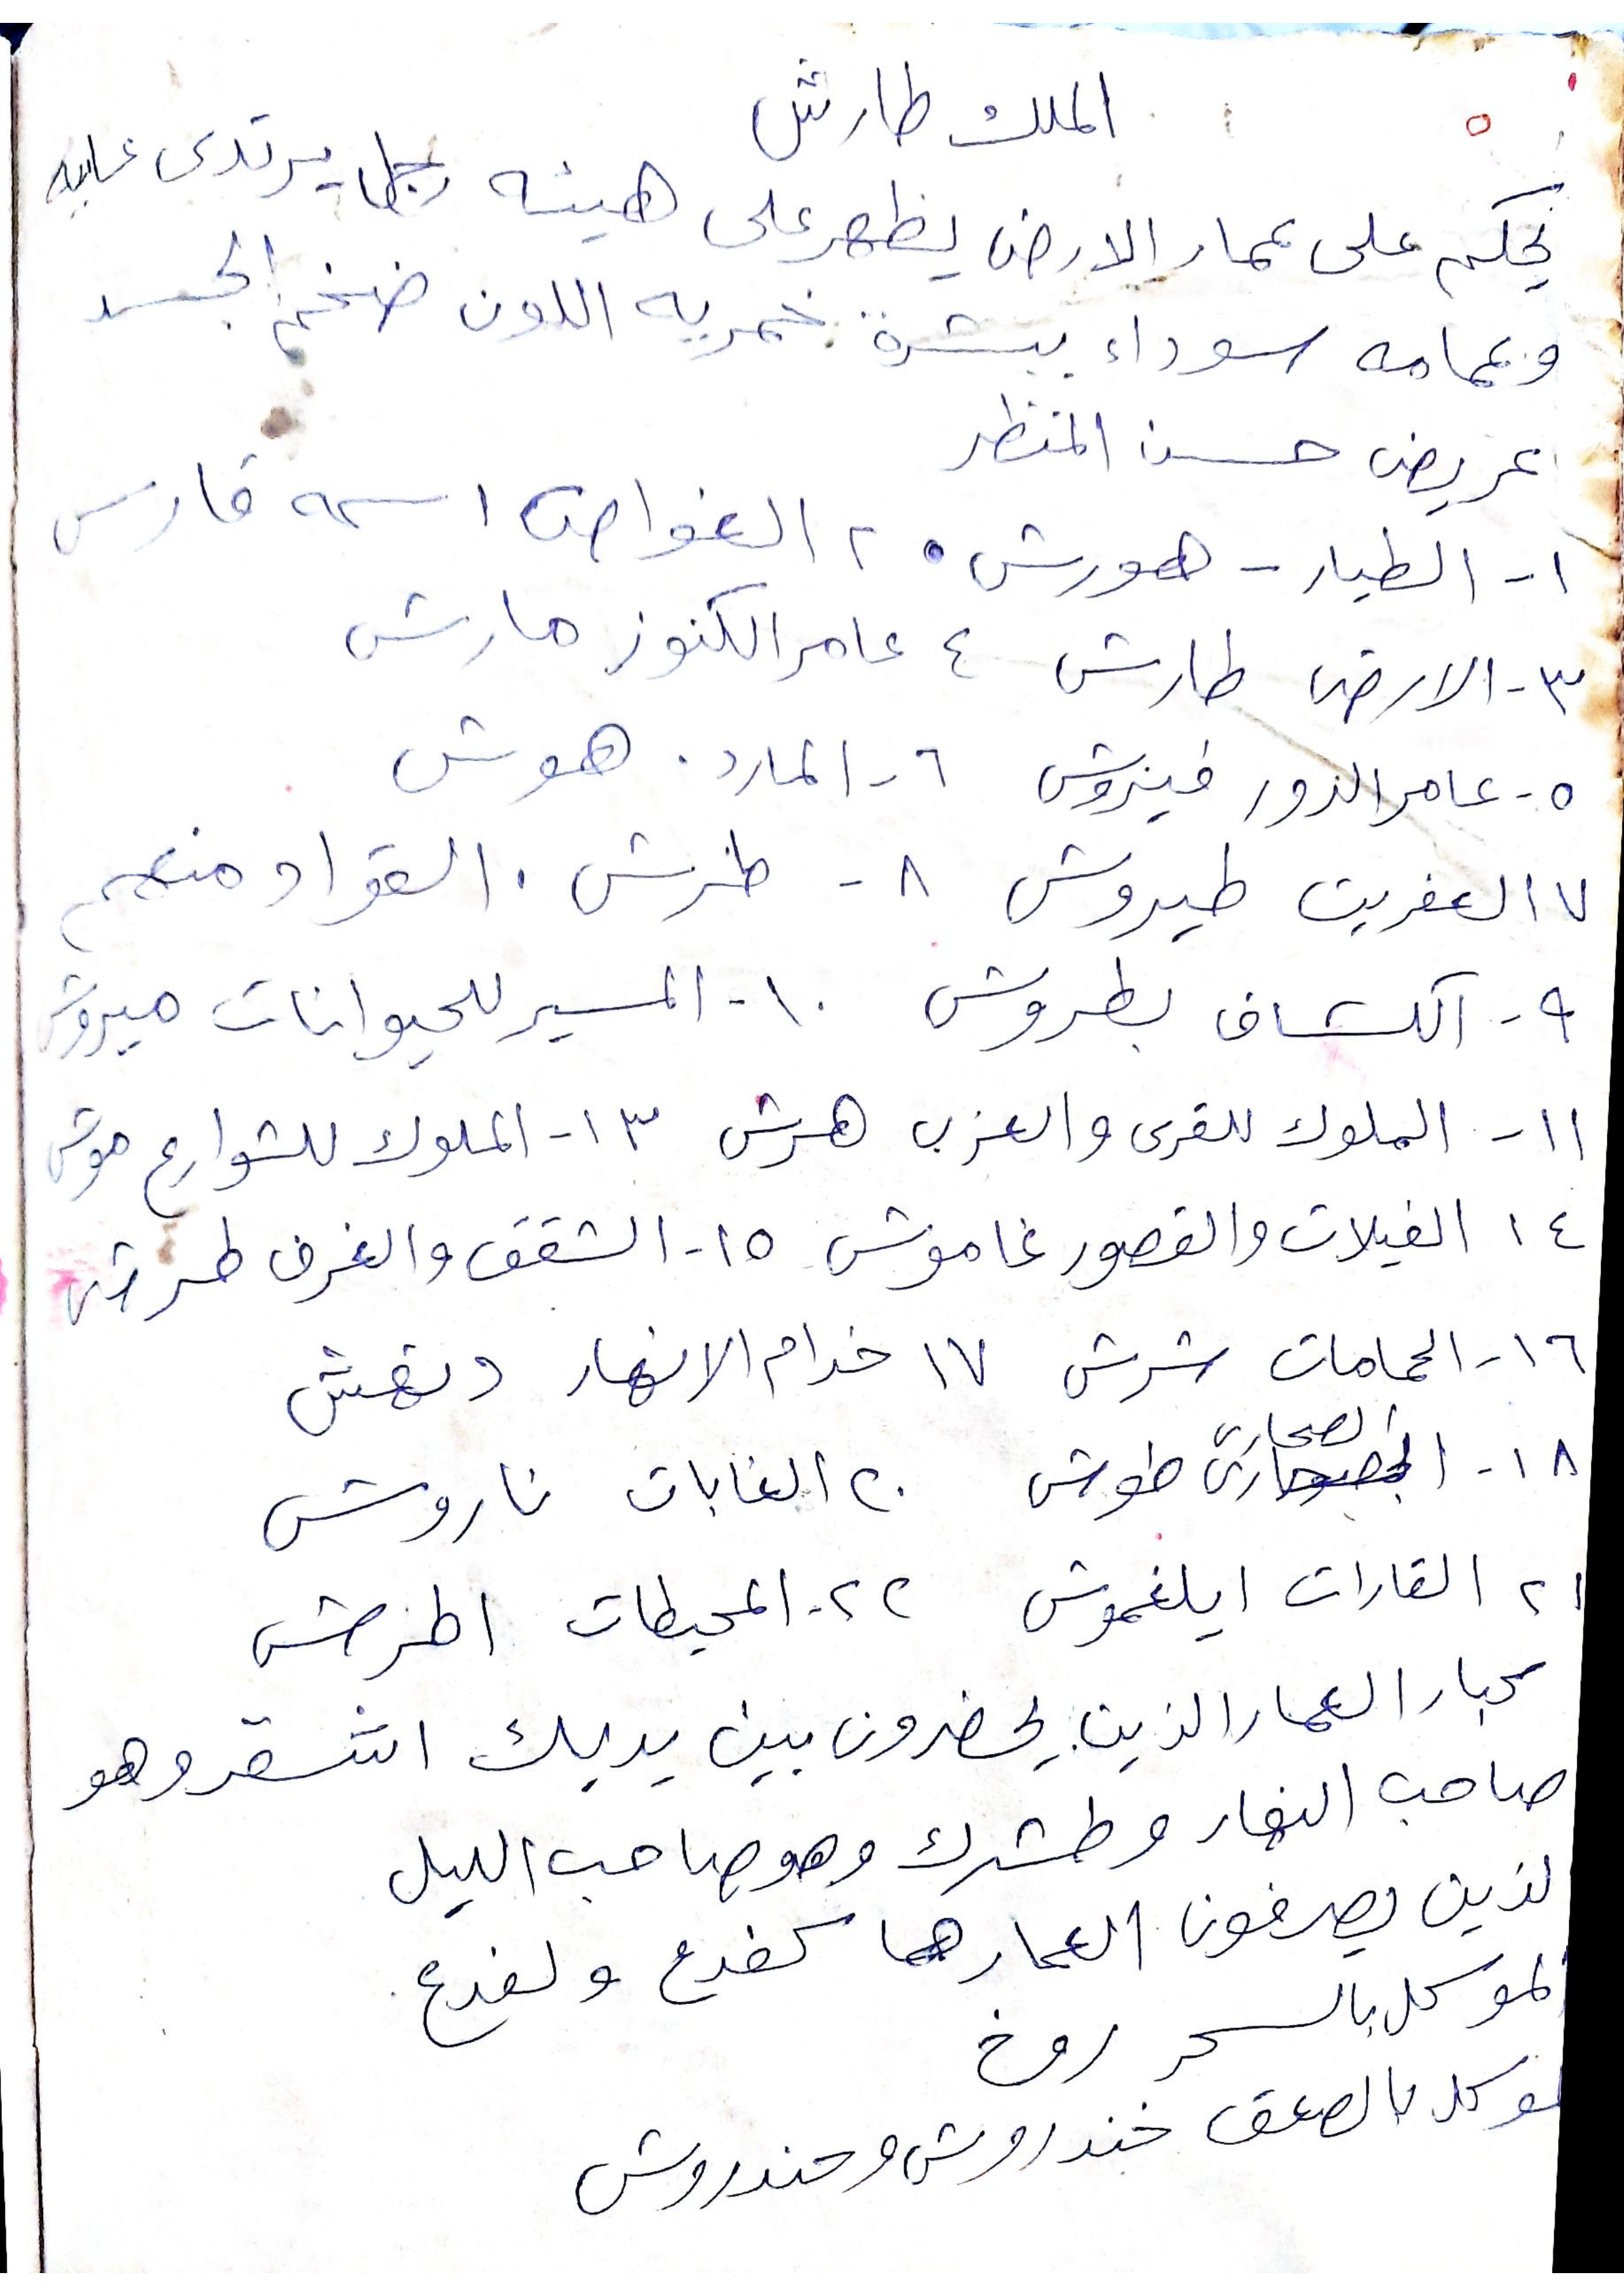 ٥
الملك طارش
يحكم على عمار الارض يظهر على هيئه رجل يرتدى عبايه
وعمامه سوداء ببشرة خمريه اللون ضخم الجسد
عريض حسن المنظر
١- الطيار - هورش ٢٠ الغواص اسمه قارس
٣- الارض طارش ٤ عامر الكنوز مارش
٥- عامر الدور فينروش ٦- المارد . هوش
٧ العفريت طيروش ٨ - طرش . القواد منعم
٩- الكشاف بطروش ١٠- المسير للحيوانات ميروش
١١- الملوك للقرى والعزب هرش ١٣- الملوك للشوارع موش
١٤ الفيلات والقصور غاموش ١٥- الشقق والغرف طرش
١٦- الحمامات شرش ١٧ خدام الانهار دنهش
١٨- الصحارى طوش ٢٠ الغابات ناروش
٢١ القارات ايلغموش ٢٢- المحيطات اطرش
كبار العمار الذين يحضرون بين يديك اشقر وهو
صاحب النهار وطشرك وهو صاحب الليل
لذين يصرفون العمار هما كفدع ولفدع
لموكل بالسحر روخ
لموكل بالصعق خندروش وحندروش